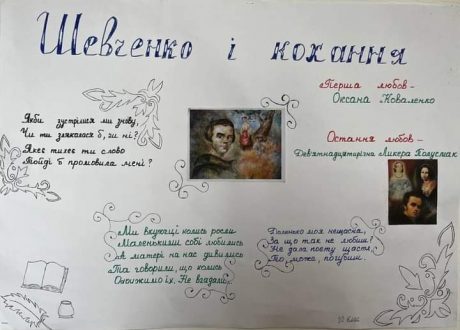 Шевченко і кохання
Перша любов -
Оксана Коваленко
Якби зустрілися ми знову,
Чи ти злякалася б, чи ні?
Якеє тихеє ти слово
Тойді б промовила мені?
Остання любов -
Дев'ятнадцятирічна Ликера Полусмак
Ми вкупочці колись росли
Маленькими собі любились
А матері на нас дивились
Та говорили, що колись
Одружимо їх. Не вгадали.
моя нещасна,
За що так не любиш?
Не дала поету щастя,
То може, погубиш.